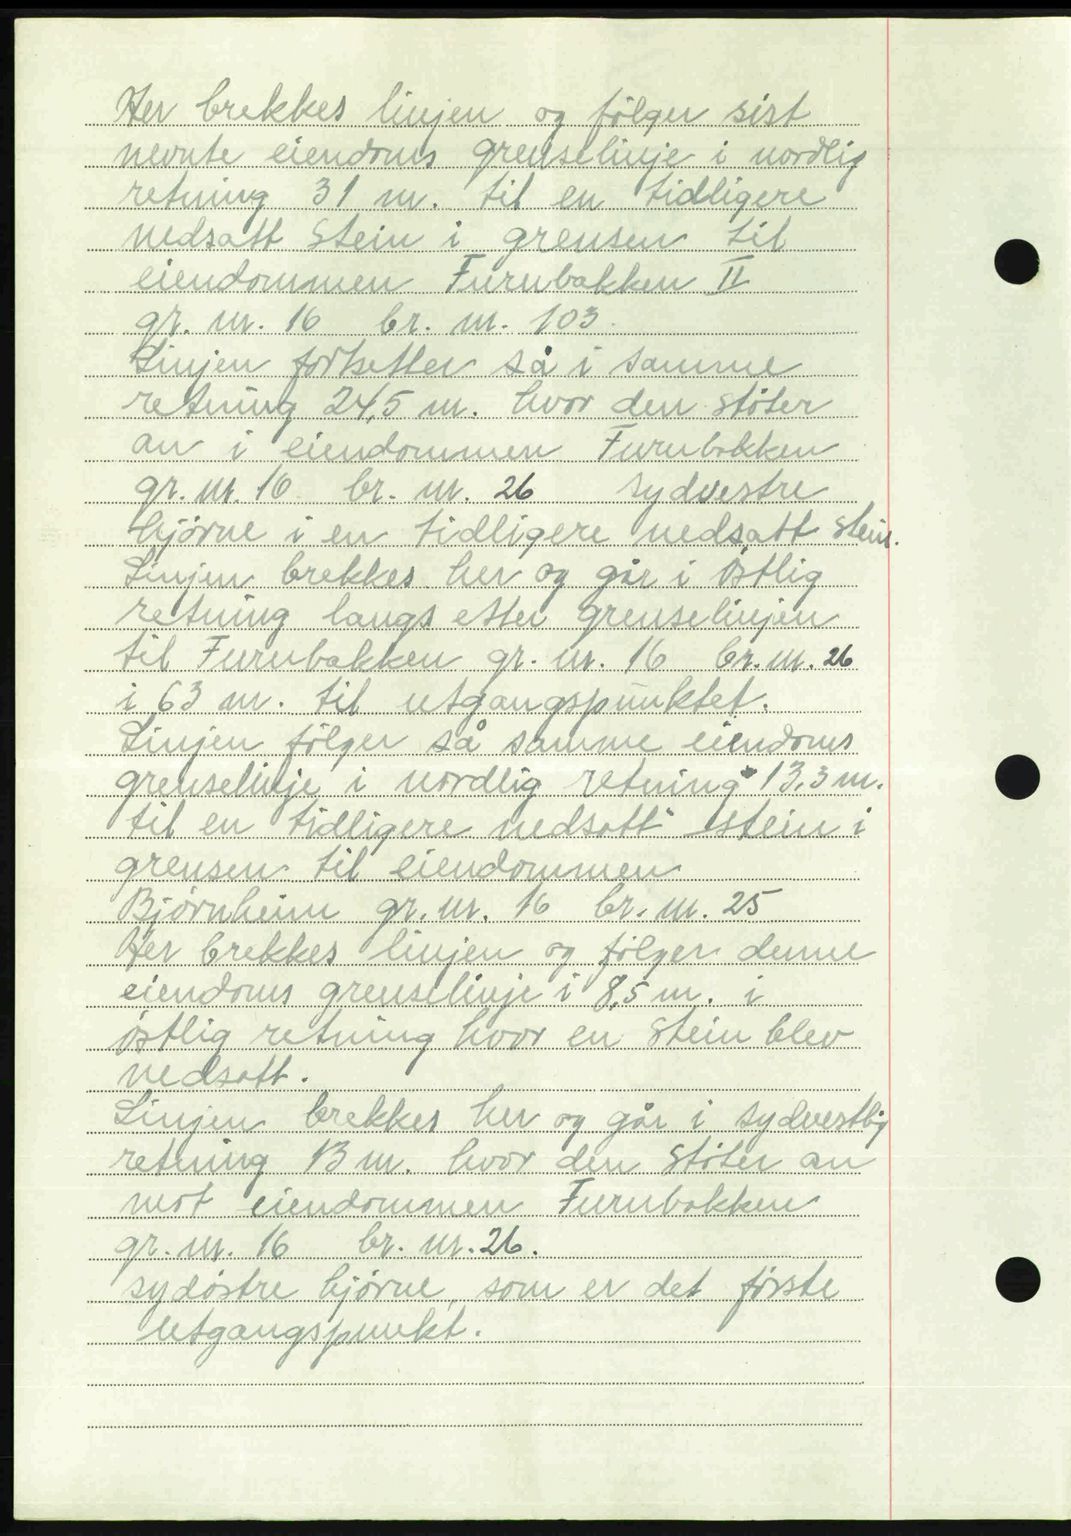 Her brekkes linjen og følger sist
nevnte eiendoms grenselinje i nordlig
retning 31 m. til en tidligere
nedsatt stein i grensen til
eiendommen Furubakken II
gr. nr. 16 br. nr. 103.
Linjen fortsetter så i samme
retning 24,5 m. hvor den støter
an i eiendommen Furubakken
gr. nr. 16 br. nr. 26 sydvestre
hjørne i en tidligere nedsatt stein.
Linjen brekkes her og går i östlig
retning langs etter grenselinjen
til Furubakken gr. nr. 16 br. nr. 26
i 63 m. til utgangspunktet.
Linjen følger så samme eiendoms
grenselinje i nordlig retning 13,3 m.
til en tidligere nedsatt stein i
grensen til eiendommen
Bjørnheim gr. nr. 16 br. nr. 25
Her brekkes linjen og følger denne
eiendoms grenselinje i 8,5 m. i
östlig retning hvor en stein blev
nedsatt.
Linjen brekkes her og går i sydvestlig
retning 13 m. hvor den støter an
mot eiendommen Furubakken
gr. nr. 16 br. nr. 26.
sydøstre hjørne, som er det første
utgangspunkt.